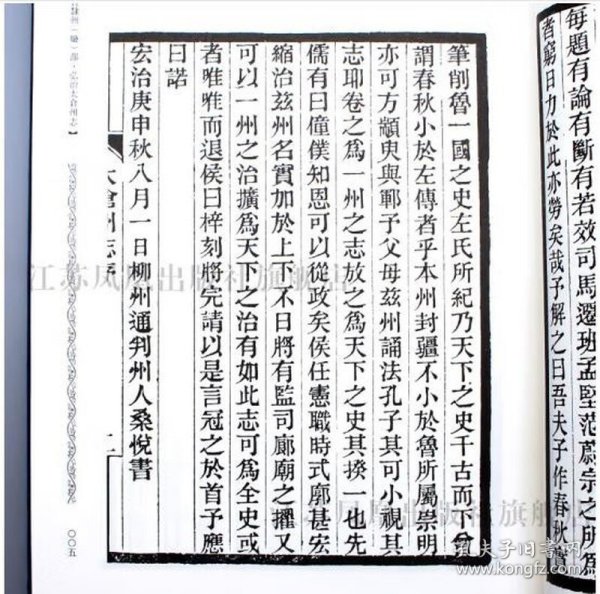 每題有論有斷有若效司馬遷班孟堅范蔚宗之所爲
者窮日力於此亦勞矣哉予解之曰吾夫子作春秋實
筆削魯一國之史左氏所紀乃天下之史千古而下曾
謂春秋小於左傳者乎本州封疆不小於魯所屬崇明
亦可方顓臾與鄆予父母茲州誦法孔子其可小視其
志耶卷之爲一州之志放之爲天下之史其揆一也先
儒有曰僮僕知恩可以從政矣侯任憲職時式廓甚宏
縮治茲州名實加於上下不日將有監司廊廟之擢又
可以一州之治擴爲天下之治有如此志可爲全史或
者唯唯而退侯曰梓刻將完請以是言冠之於首予應
曰諾
宏治庚申秋八月一日柳州通判州人桑悅書
太倉州志序
二
隸州(廳)部·弘治太倉州志】
〇〇五
江苏凤凰出版社旗舰店
江苏凤凰出版社旗舰店
孔夫子旧书网
www.kongfz.com